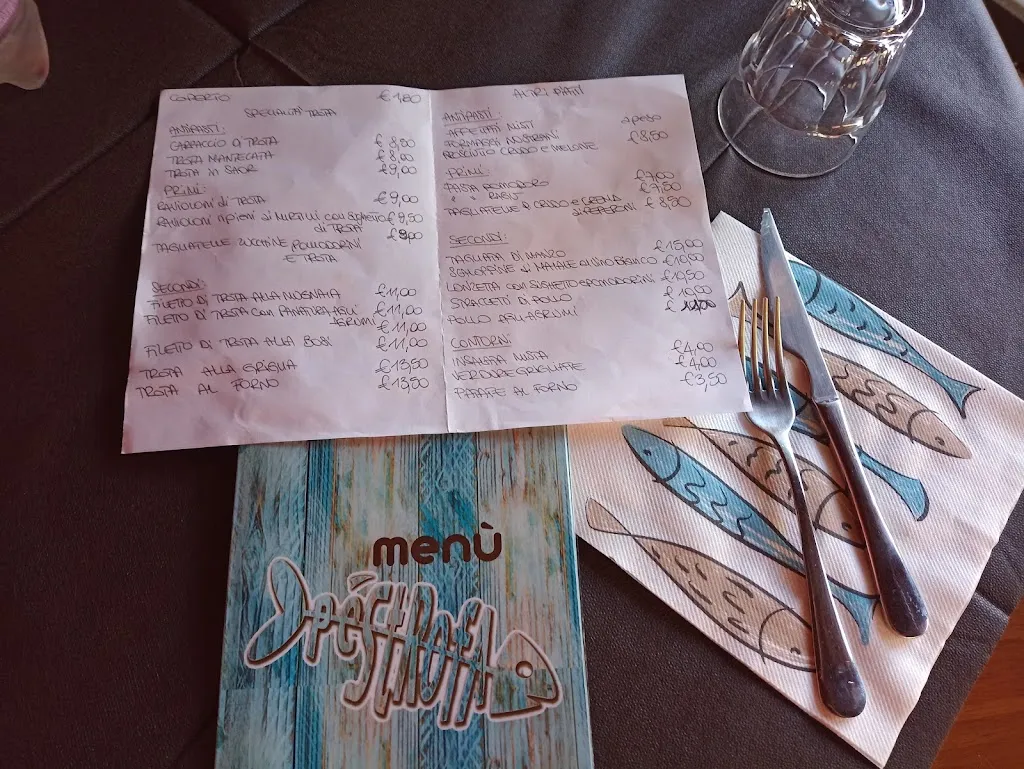 COPERTO € 1,80
SPECIALITÀ TROTA
ANTIPASTI:
CARPACCIO DI TROTA € 8,50
TROTA MANTECATA € 8,00
TROTA IN SAOR € 9,00
PRIMI:
RAVIOLONI DI TROTA € 9,00
RAVIOLONI RIPIENI AI MIRTILLI CON SUGHETTO € 9,50
DI TROTA
TAGLIATELLE ZUCCHINE POMODORINI
E TROTA
SECONDI:
FILETTO DI TROTA ALLA MUGNAIA € 11,00
FILETTO DI TROTA CON PANATURA AGLI € 11,00
AGRUMI € 11,00
FILETTO DI TROTA ALLA € 11,00
TROTA ALLA GRIGLIA € 13,50
TROTA AL FORNO € 13,50
ALTRI PIATTI
ANTIPASTI:
AFFETTATI MISTI a peso
FORMAGGI NOSTRANI € 8,50
PROSCIUTTO CRUDO E MELONE
PRIMI:
PASTA POMODORO € 7,00
" " RAGÙ € 7,50
TAGLIATELLE CRUDO E CREMA
DI PEPERONI € 8,50
SECONDI:
TAGLIATA DI MANZO € 15,00
SCALOPPINE DI MAIALE AL VINO BIANCO € 10,00
LONZETTA CON SUGHETTO E POMODORINI € 10,50
STRACCETTI DI POLLO € 10,00
POLLO AGLI AGRUMI
CONTORNI
INSALATA MISTA € 4,00
VERDURE GRIGLIATE € 4,00
PATATE AL FORNO € 3,50
menù